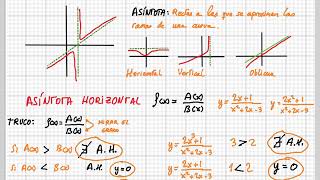 ASÍNTOTA: Rectas a las que se aproximan las
ramas de una curva.
Horizontal Vertical Oblicua
ASÍNTOTA HORIZONTAL f(x)= A(x)/B(x) y= 2x+1/x²+2x-3 y= 2x²+1/x²+2x-3
TRUCO: f(x)= A(x)/B(x) → MIRAR EL GRADO
Si A(x) > B(x) ∄ A.H. y= 2x³+1/x²+2x-3 3>2 ∄ A.H.
Si A(x) < B(x) A.H. y=0 y= 2x+1/x²+2x-3 1<2 y=0